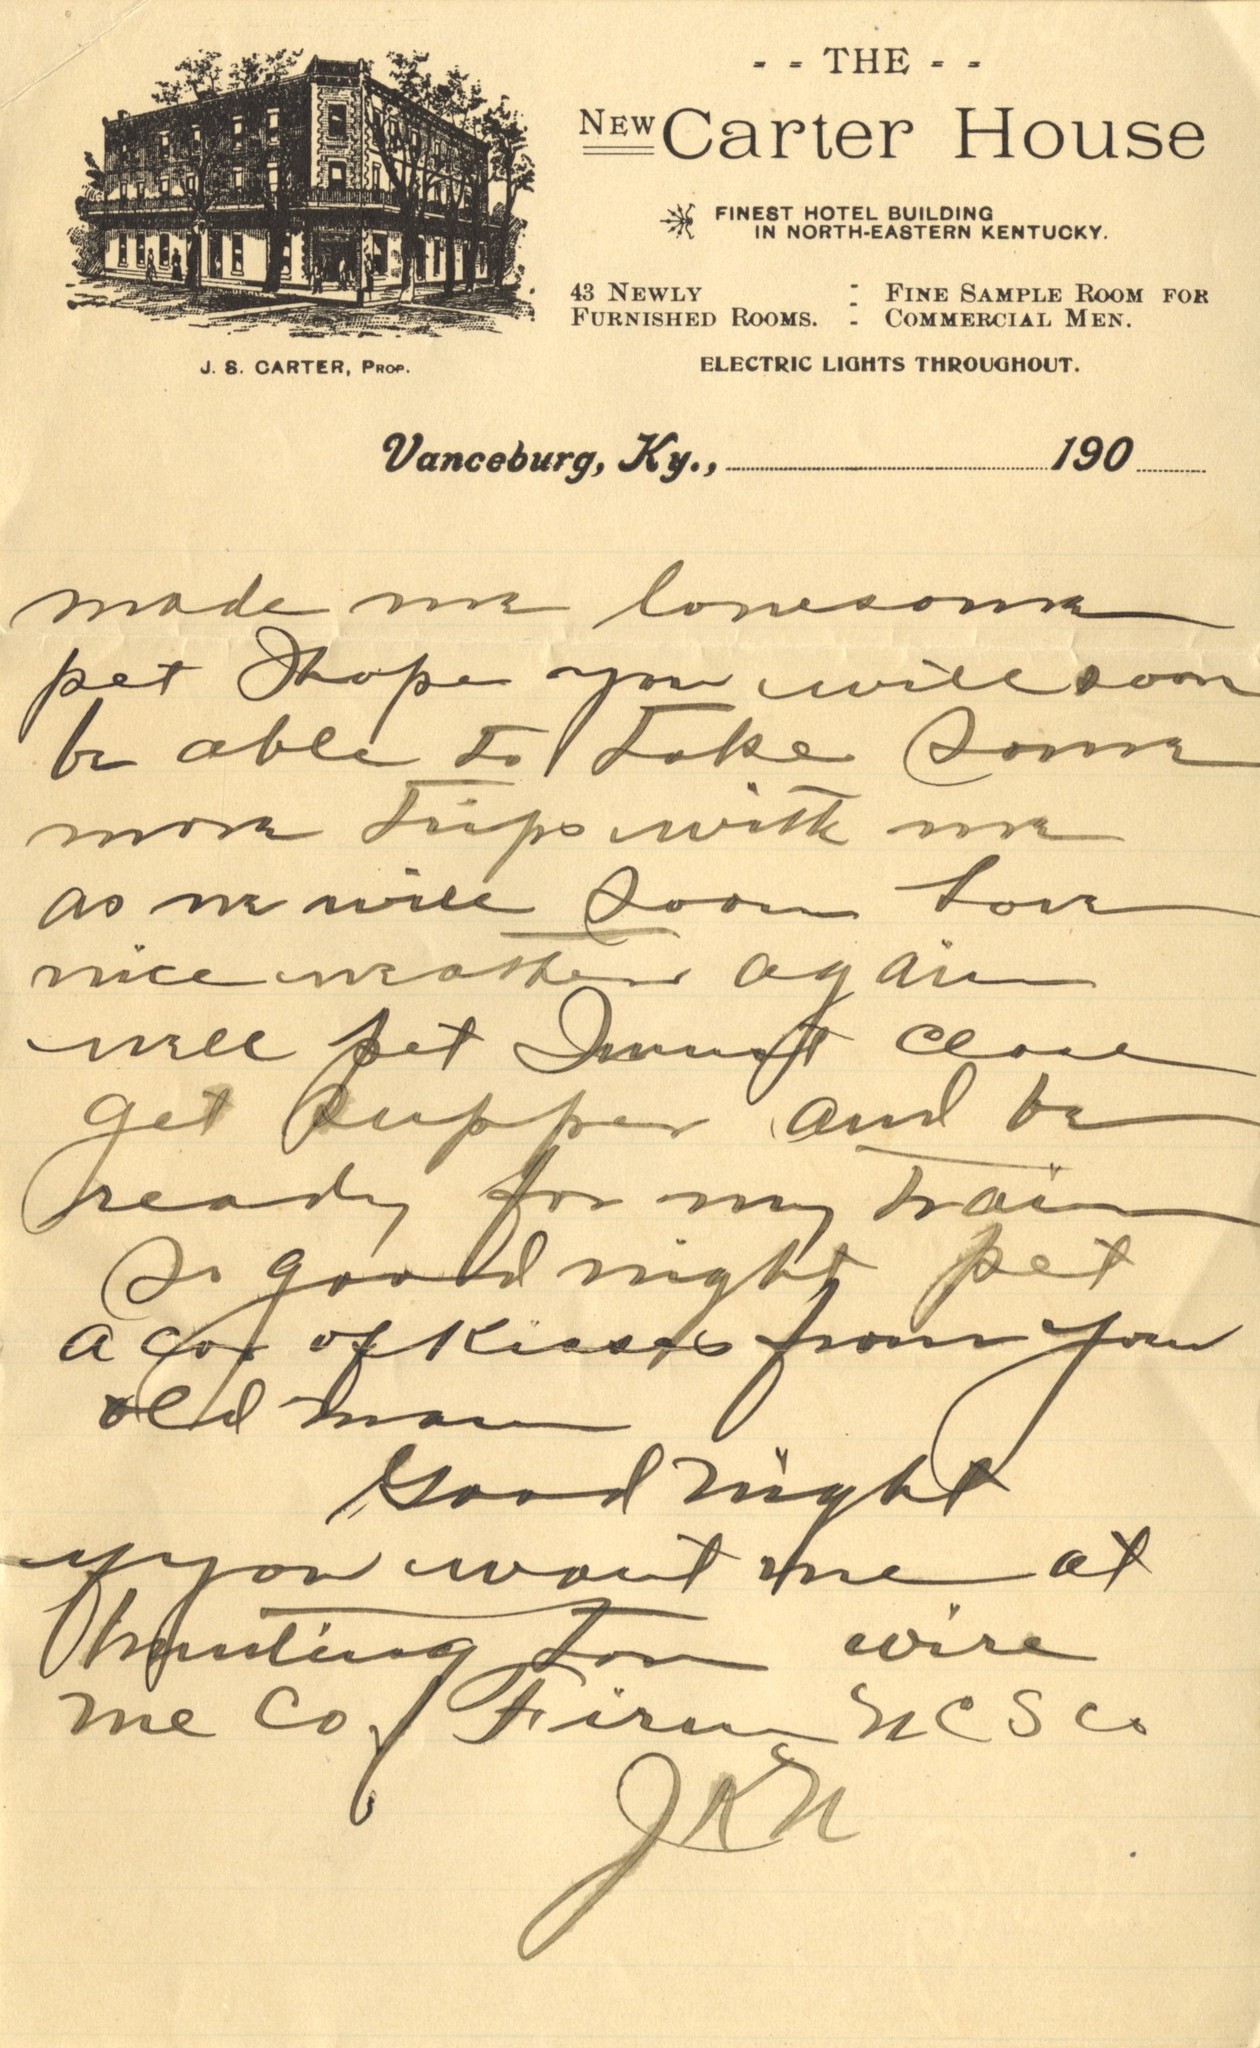 - - THE - -
NEW Carter House
FINEST HOTEL BUILDING
IN NORTH-EASTERN KENTUCKY.
43 NEWLY
FURNISHED ROOMS.
: FINE SAMPLE ROOM FOR
- COMMERCIAL MEN.
J. S. CARTER, PROP.
ELECTRIC LIGHTS THROUGHOUT.
Vanceburg, Ky., 190
made me lonesome
pet I hope you will soon
be able to take some
more trips with me
as we will soon have
nice weather again
well pet I must close
get supper and be
ready for my train
so good night pet
a Car of kisses from your
old man
Good night
if you want me at
huntington wire
me Co Firm NCS Co
JKN